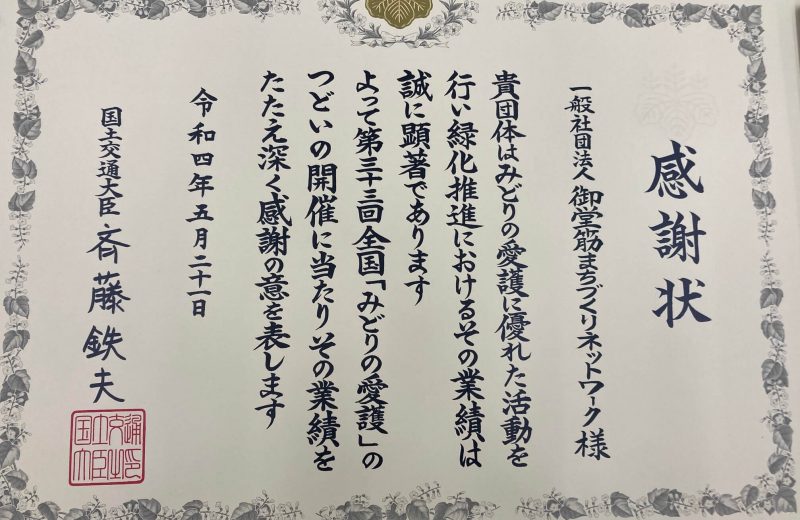 感謝状
一般社団法人 御堂筋まちづくりネットワーク 様
貴団体はみどりの愛護に優れた活動を
行い緑化推進におけるその業績は
誠に顕著であります
よって第三十三回全国「みどりの愛護」の
つどいの開催に当たりその業績を
たたえ深く感謝の意を表します
令和四年五月二十一日
国土交通大臣 斉藤鉄夫
国土交通大臣之印